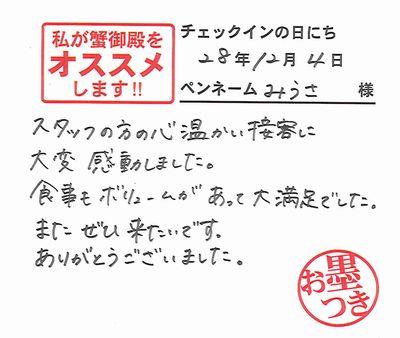 私が蟹御殿を
オススメ
します!!
チェックインの日にち
28年12月4日
ペンネーム みうさ 様
スタッフの方の心温かい接客に
大変 感動しました。
食事も ボリュームが あって 大満足でした。
また ぜひ 来たいです。
ありがとうございました。
お墨つき